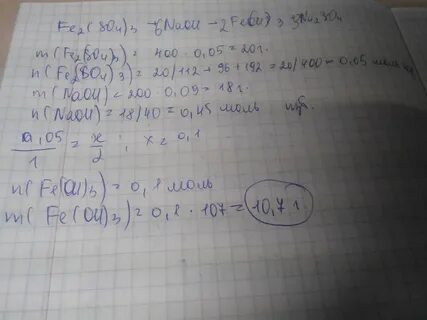 Fe₂(SO₄)₃ - 6NaOH - 2Fe(OH)₃ 3Na₂SO₄
m(Fe₂(SO₄)₃) = 400 · 0,05 = 20г.
n(Fe₂(SO₄)₃) = 20/112 + 96 + 192 = 20/400 = 0,05 моль
m(NaOH) = 200 · 0,09 = 18г.
n(NaOH) = 18/40 = 0,45 моль изб.
0,05/1 = x/2 ; x = 0,1
n(Fe(OH)₃) = 0,1 моль
m(Fe(OH)₃) = 0,1 · 107 = 10,7 г.